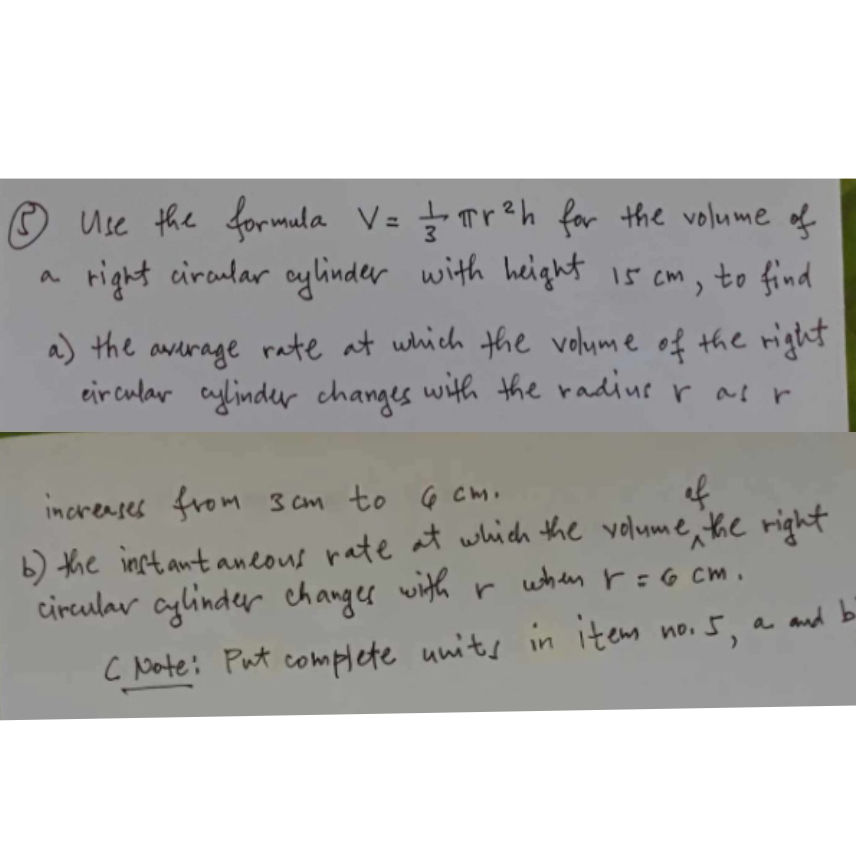 ⑤ Use the formula V = 1/3 πr²h for the volume of
a right circular cylinder with height 15 cm, to find
a) the average rate at which the volume of the right
circular cylinder changes with the radius r as r
increases from 3 cm to 6 cm.
b) the instantaneous rate at which the volume of the right
circular cylinder changes with r when r = 6 cm.
( Note: Put complete units in item no. 5, a and b